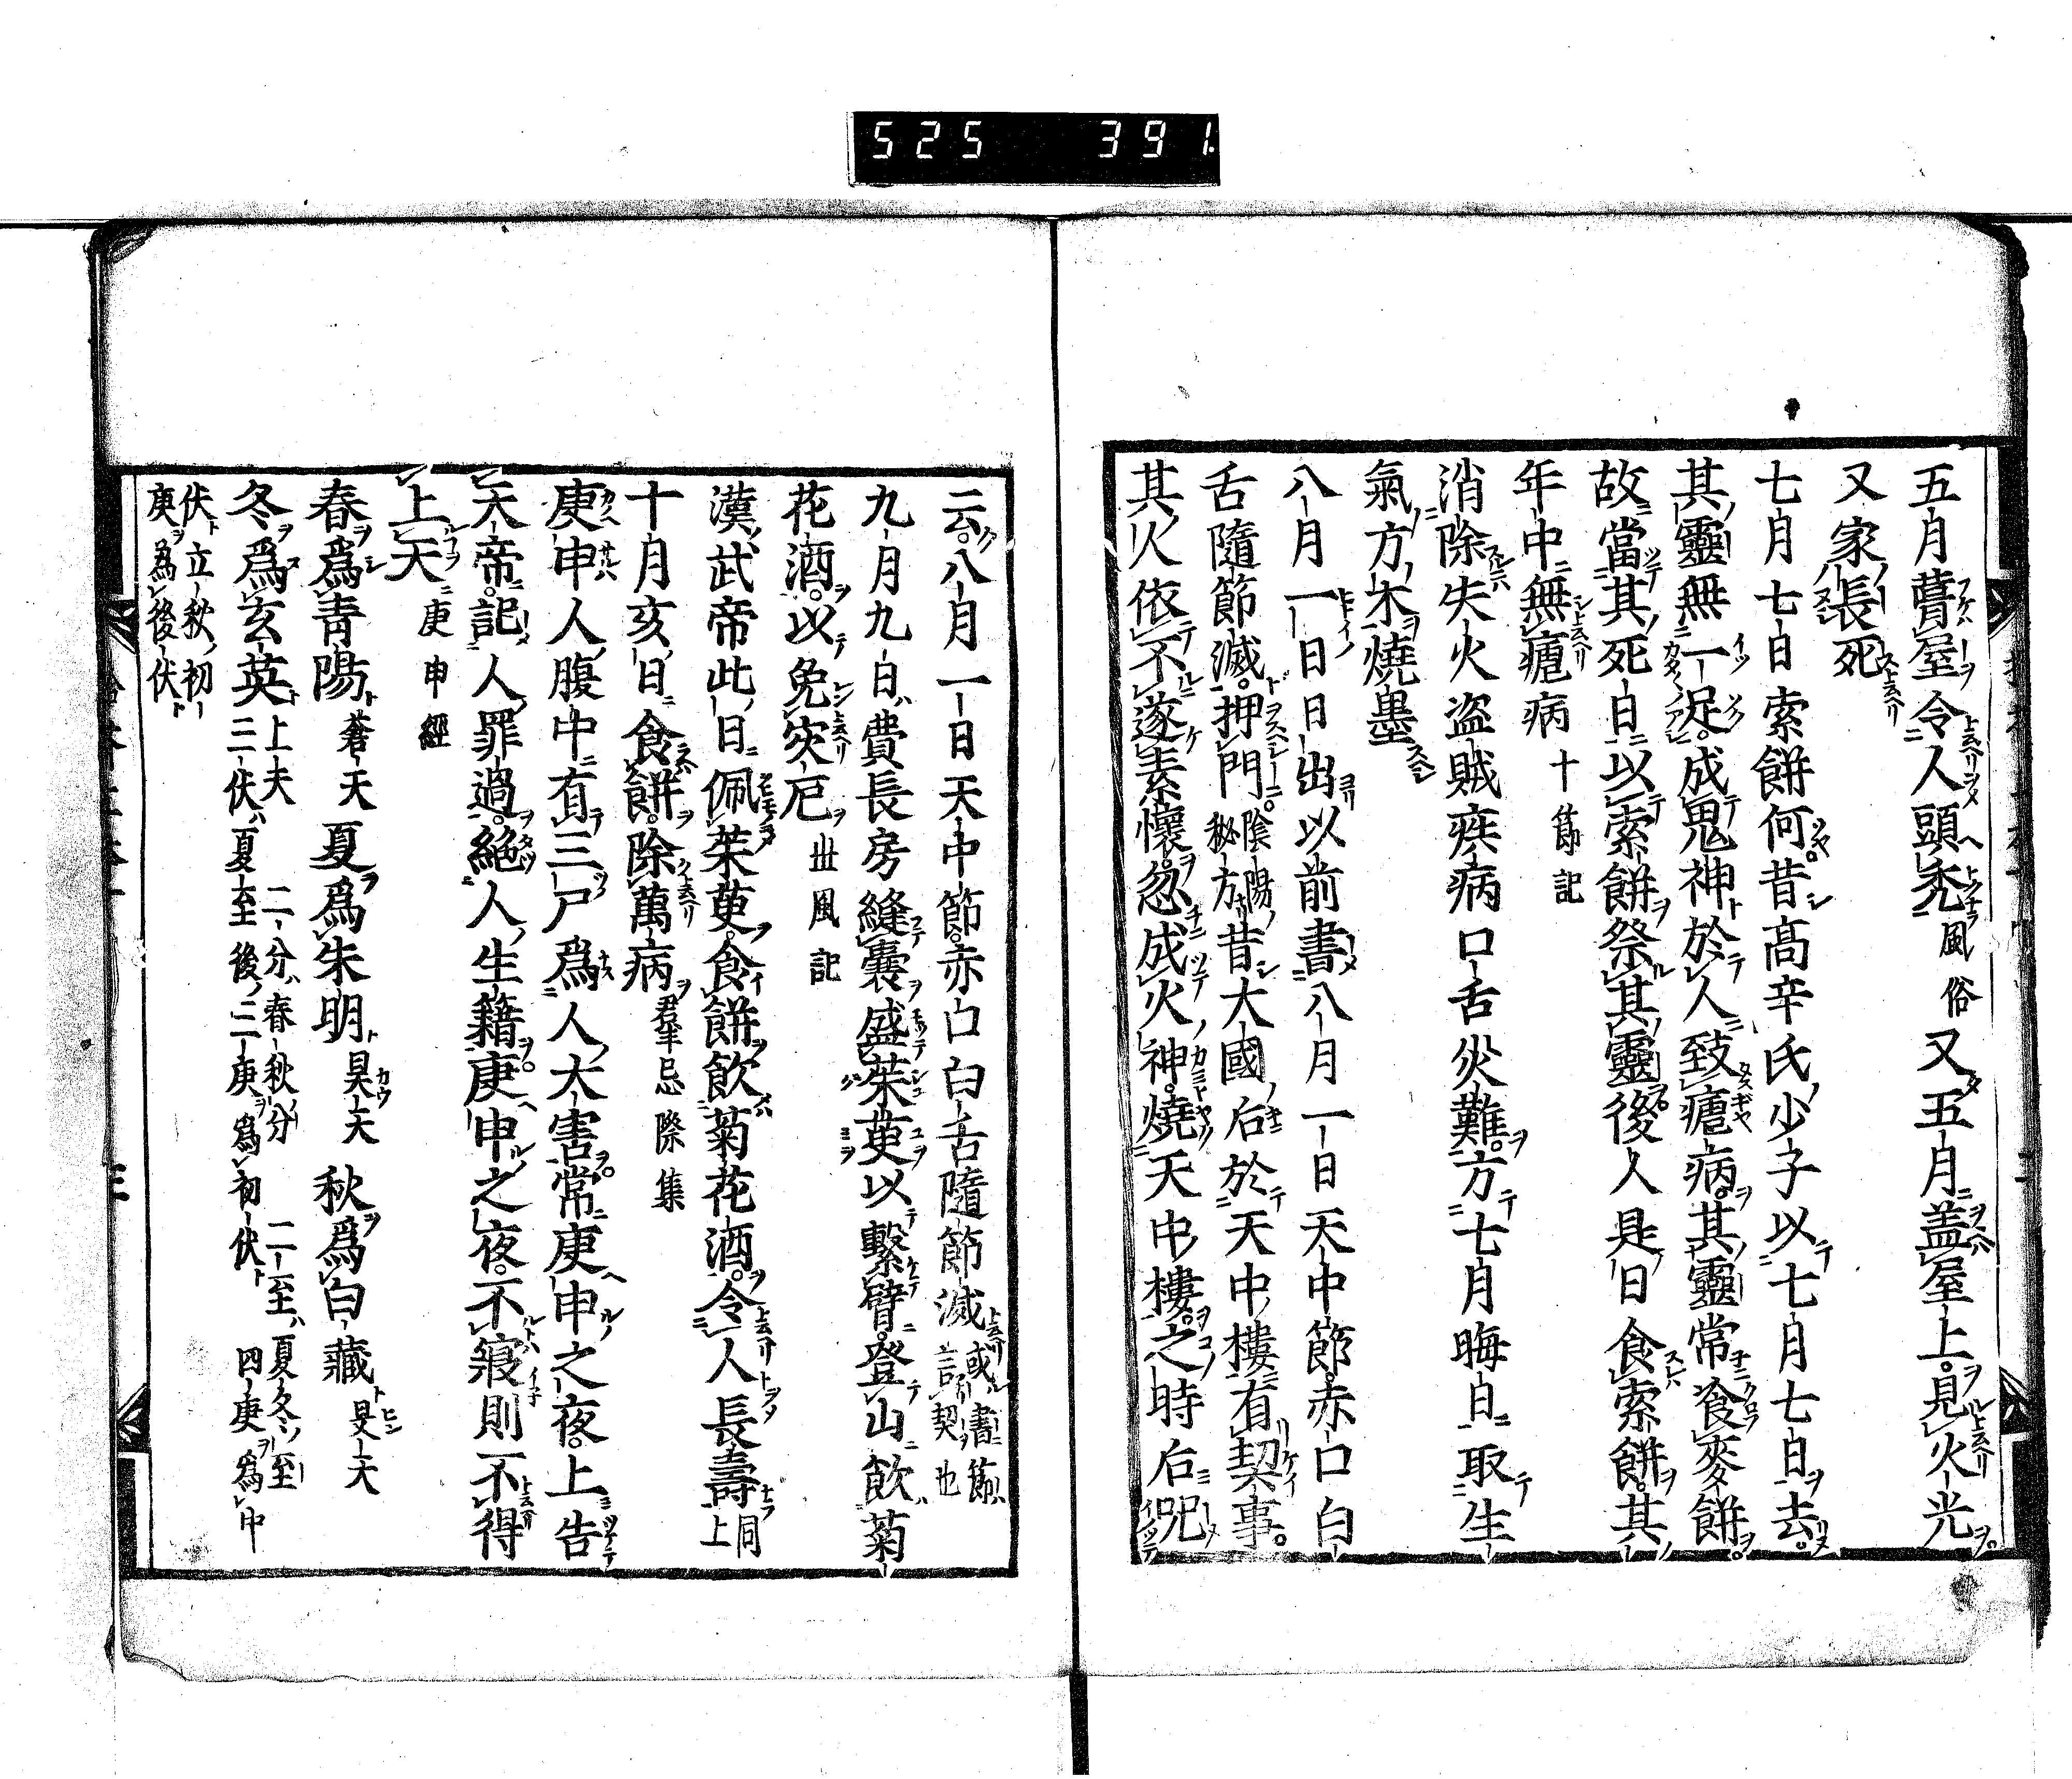 525 391
五月蕢屋令人頭禿風俗又五月盖屋上見火光
又家長死
七月七日索餅何昔髙辛氏少子以七月七日去
其靈無一足成鬼神於人致瘧病其靈常飡麥餅
故當其死日以索餅祭其靈後人是日食索餅其
年中無瘧病十節記
消除失火盗賊疾病口舌災難方七月晦日取生
氣方木燒墨
八月一日日出以前書八月一日天中節赤口白
舌隨節滅押門陰陽秘方昔大國后於天中樓有契事
其人依不遂素懷忽成火神燒天中樓之時后呪
云八月一日天中節赤口白舌隨節滅或書節
九月九日費長房縫囊盛茱萸以繋臂登山飲菊
花酒以免灾厄丗風記
漢武帝此日佩茱萸食餅飲菊花酒令人長壽同上
十月亥日食餅除萬病群忌際集
庚申人腹中有三尸爲人大害常庚申之夜上告
天帝記人罪過絶人生籍庚申之夜不寢則不得
上天庚申經
春爲青陽蒼天夏爲朱明昊天秋爲白藏旻天
冬爲玄英上天二分春秋分二至夏冬至
三伏夏至後三庚爲初伏四庚爲中
伏立秋初
庚為後伏